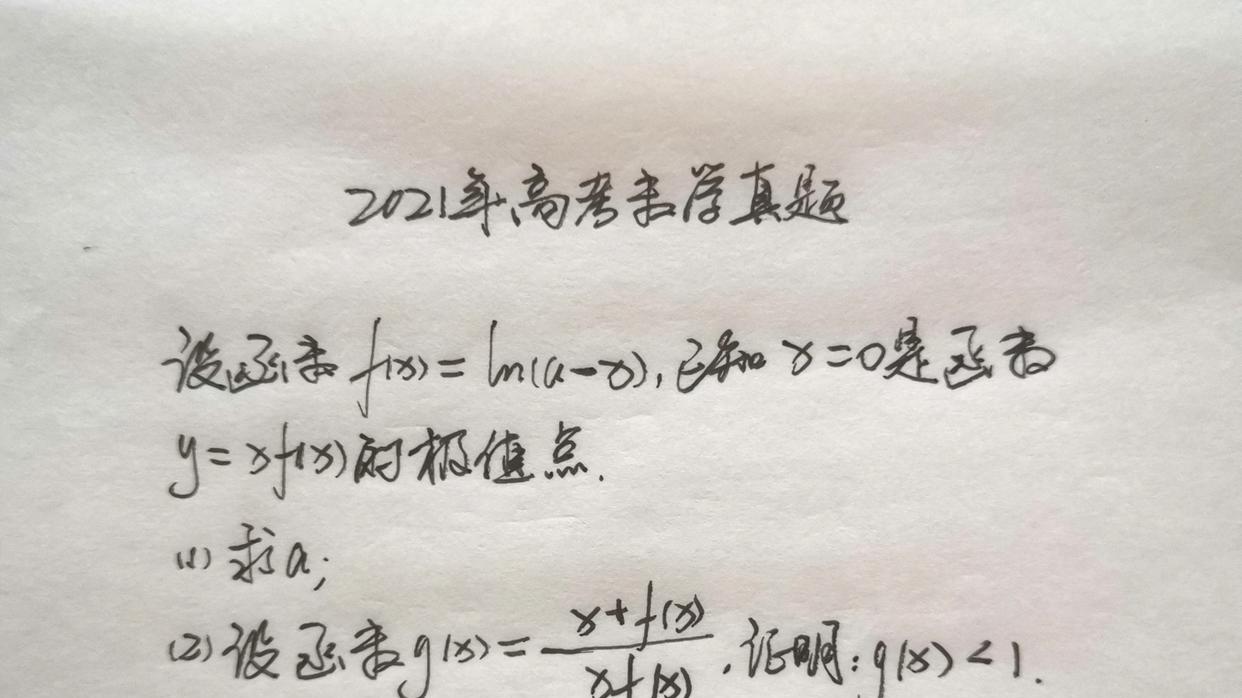 2021年高考数学真题
设函数 f(x) = ln(a-x), 已知 x=0是函数
y = xf(x)的极值点.
(1) 求a;
(2) 设函数g(x) = \frac{x+f(x)}{xf(x)}, 证明: g(x) < 1.